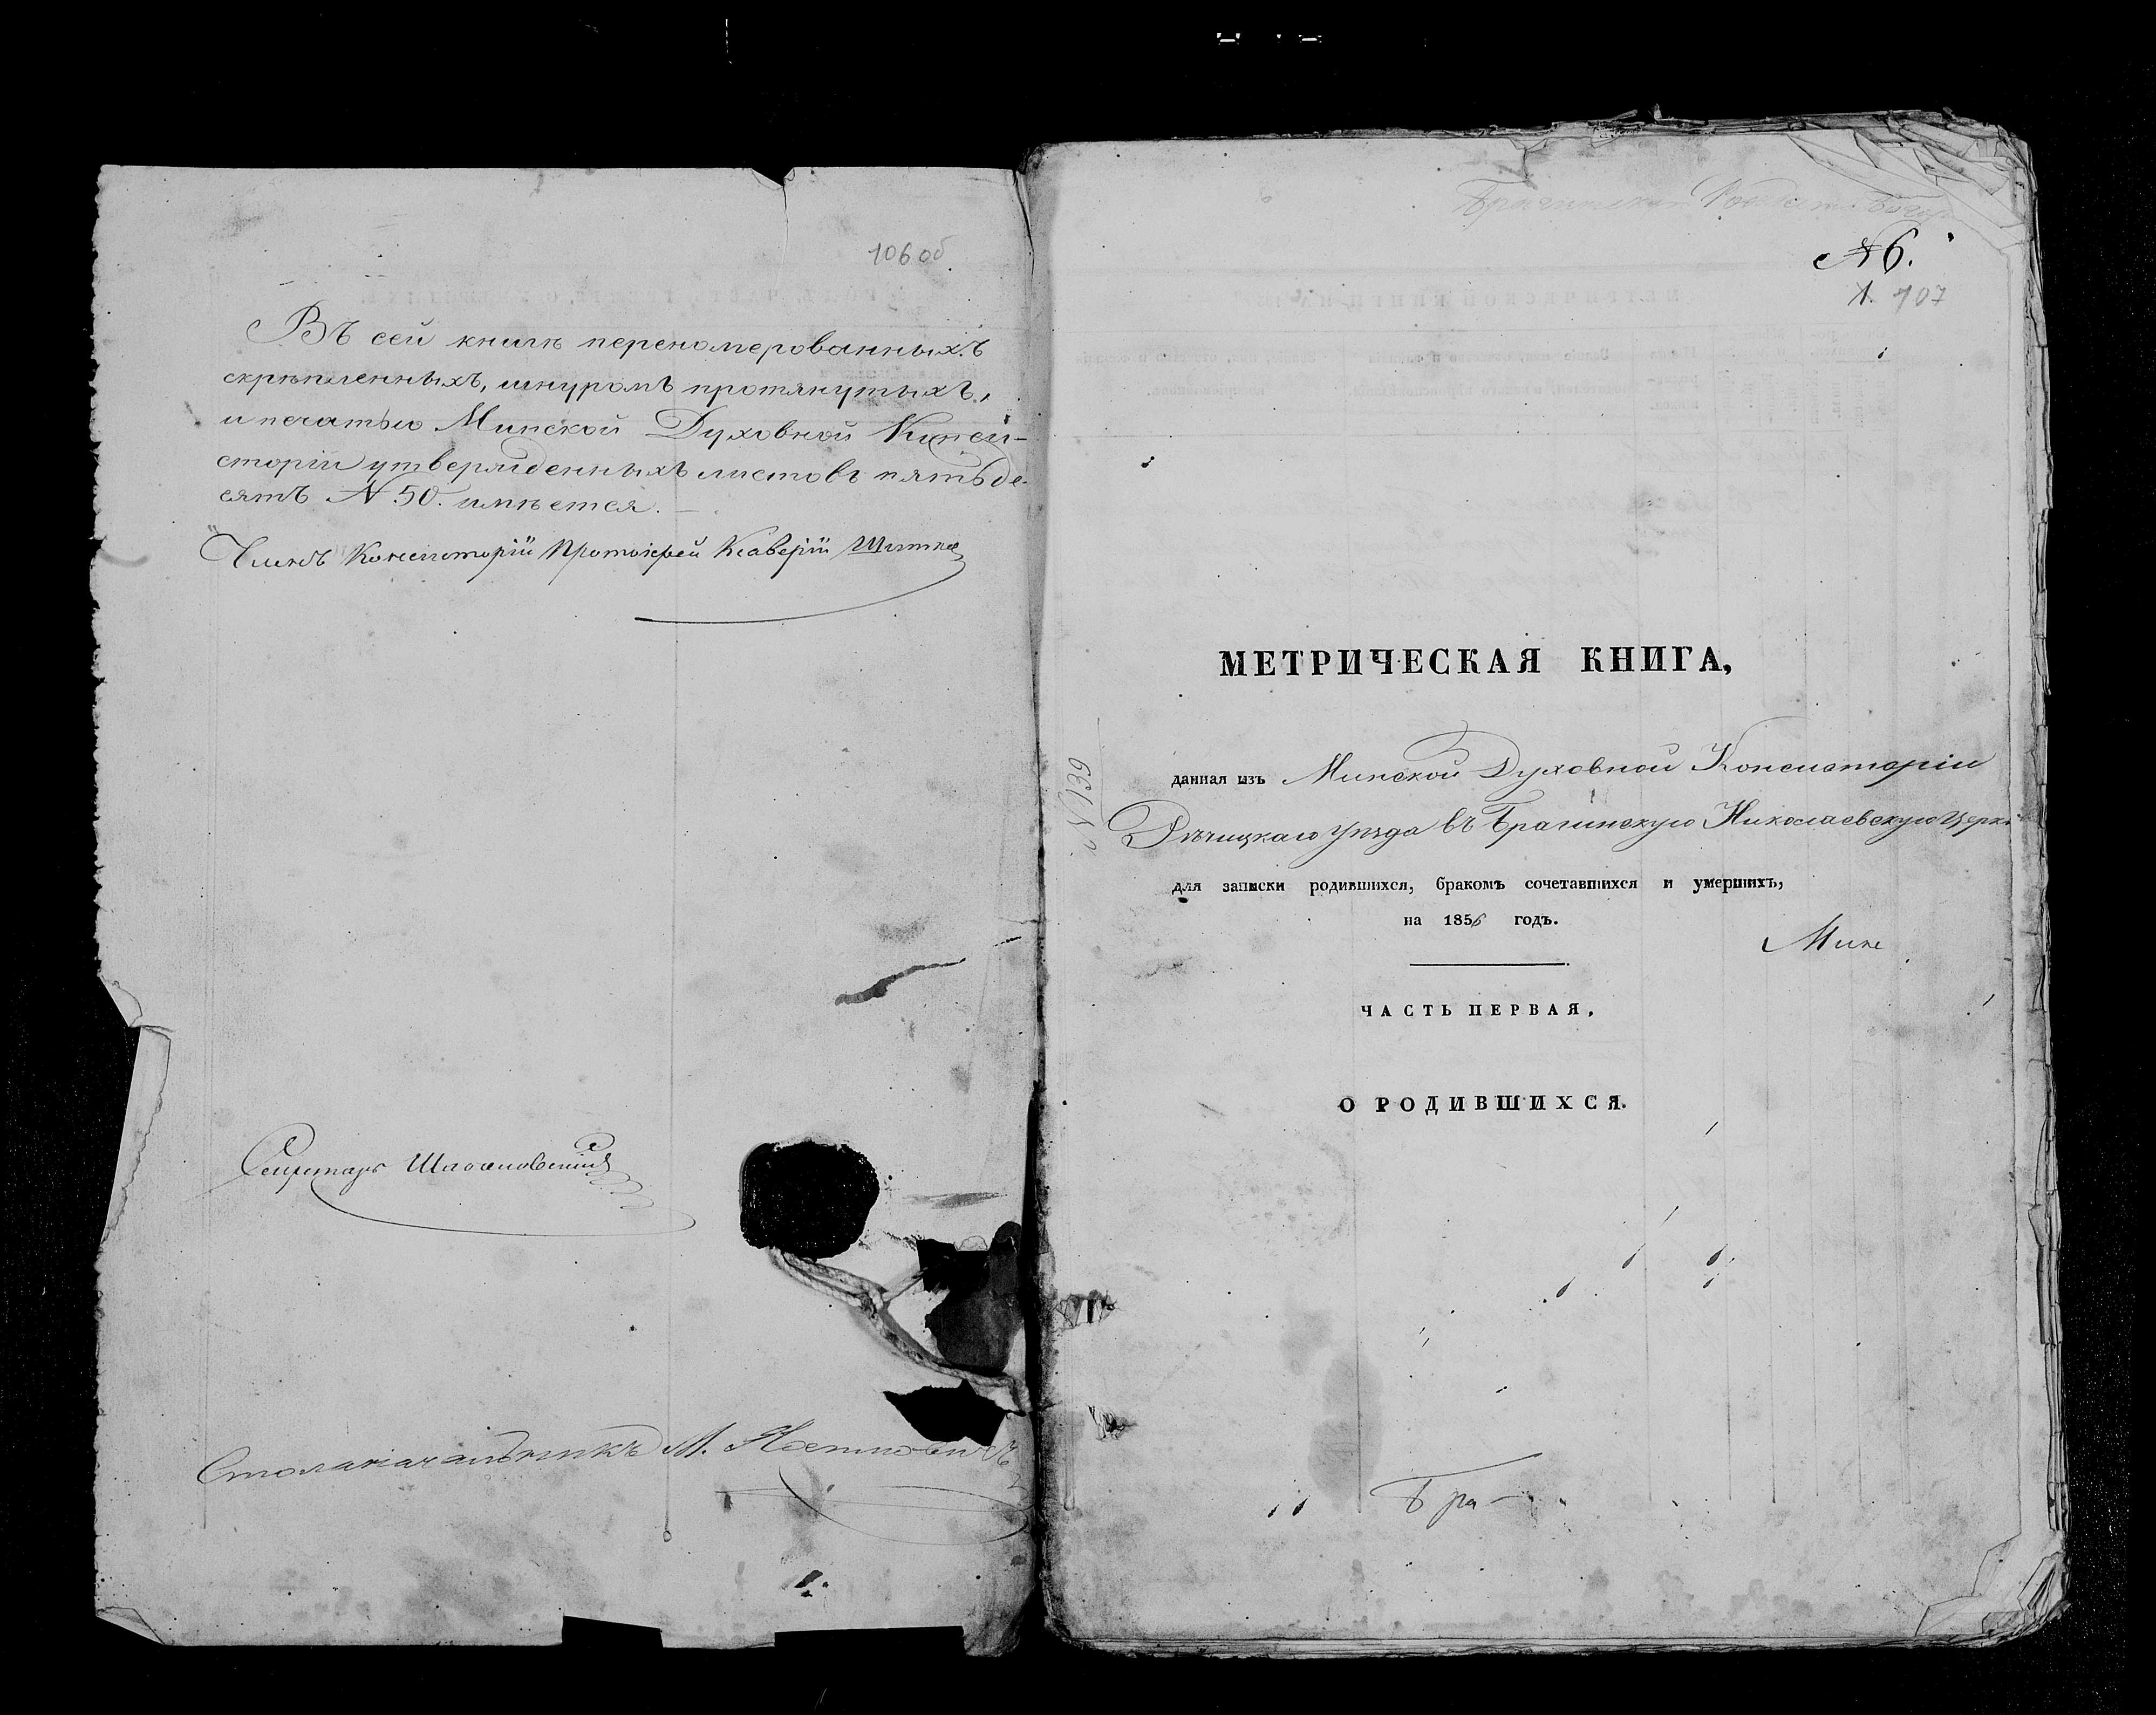 106 об
Въ сей книгѣ переномерованныхъ
скрѣпленныхъ, шнуромъ протянутыхъ,
и печатью Минской Духовной Конси-
сторіи утвержденныхъ листовъ пятьде-
сятъ № 50. имѣется.
Членъ Консисторіи Протоіерей Ксаверій
Секретарь
Столоначальникъ М.
Брагинская
№ 6.
1. 107
МЕТРИЧЕСКАЯ КНИГА,
данная изъ Минской Духовной Консисторіи
№ 139
Рѣчицкаго уѣзда въ Брагинскую Николаевскую Церкв
для записки родившихся, бракомъ сочетавшихся и умершихъ,
на 1856 годъ.
Минс
ЧАСТЬ ПЕРВАЯ,
О РОДИВШИХСЯ.
Бра-